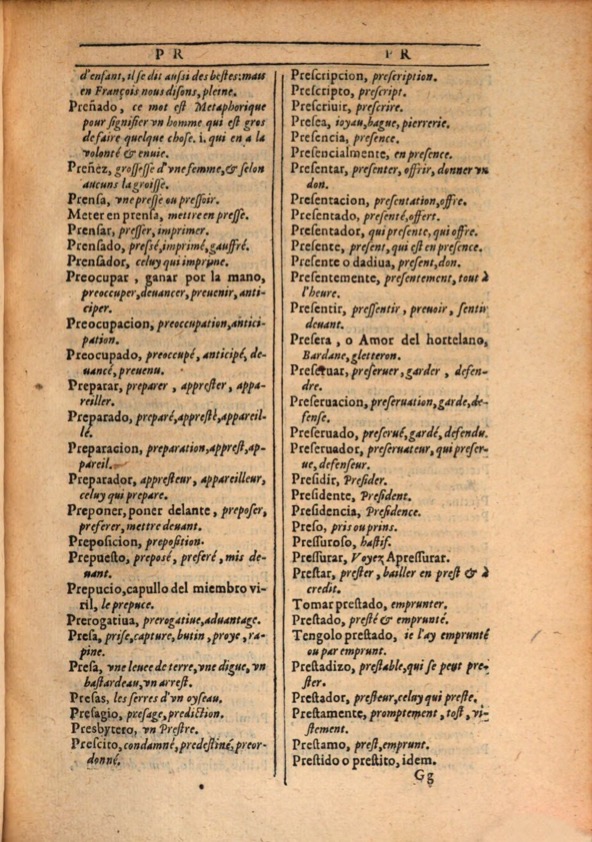 PR
PR
d'enfant, il se dit aussi des bestes: mais
en François nous disons, pleine.
Preñado, ce mot est Metaphorique
pour signifier vn homme qui est gros
de faire quelque chose. i. qui en a la
volonté & enuie.
Preñez, grossesse d'vne femme, & selon
aucuns la groisse.
Prensa, vne presse ou pressoir.
Meter en prensa, mettre en presse.
Prensar, presser, imprimer.
Prensado, pressé, imprimé, gauffré.
Prensador, celuy qui imprime.
Preocupar, ganar por la mano,
preoccuper, deuancer, preuenir, anti-
ciper.
Preocupacion, preoccupation, antici-
pation.
Preocupado, preoccupé, anticipé, de-
uancé, preuenu.
Preparar, preparer, apprester, appa-
reiller.
Preparado, preparé, appresté, appareil-
lé.
Preparacion, preparation, apprest, ap-
pareil.
Preparador, appresteur, appareilleur,
celuy qui prepare.
Preponer, poner delante, preposer,
preferer, mettre deuant.
Preposicion, preposition.
Prepuesto, preposé, preferé, mis de-
uant.
Prepucio, capullo del miembro vi-
ril, le prepuce.
Prerogatiua, prerogatiue, aduantage.
Presa, prise, capture, butin, proye, ra-
pine.
Presa, vne leuee de terre, vne digue, vn
bastardeau, vn arrest.
Presas, les serres d'vn oyseau.
Presagio, presage, prediction.
Presbytero, vn Prestre.
Prescito, condamné, predestiné, preor-
donné.
Prescripcion, prescription.
Prescripto, prescript.
Prescriuir, prescrire.
Presea, ioyau, bague, pierrerie.
Presencia, presence.
Presencialmente, en presence.
Presentar, presenter, offrir, donner vn
don.
Presentacion, presentation, offre.
Presentado, presenté, offert.
Presentador, qui presente, qui offre.
Presente, present, qui est en presence.
Presente o dadiua, present, don.
Presentemente, presentement, tout à
l'heure.
Presentir, pressentir, preuoir, sentir
deuant.
Presera, o Amor del hortelano,
Bardane, gletteron.
Preseruar, preseruer, garder, defen-
dre.
Preseruacion, preseruation, garde, de-
fense.
Preseruado, preserué, gardé, defendu.
Preseruador, preseruateur, qui preser-
ue, defenseur.
Presidir, Presider.
Presidente, President.
Presidencia, Presidence.
Preso, pris ou prins.
Pressuroso, hastif.
Pressurar, Voyez Apressurar.
Prestar, prester, bailler en prest & à
credit.
Tomar prestado, emprunter.
Prestado, presté & emprunté.
Tengolo prestado, ie l'ay emprunté
ou par emprunt.
Prestadizo, prestable, qui se peut pre-
ster.
Prestador, presteur, celuy qui preste.
Prestamente, promptement, tost, vi-
stement.
Prestamo, prest, emprunt.
Prestido o prestito, idem.
Gg